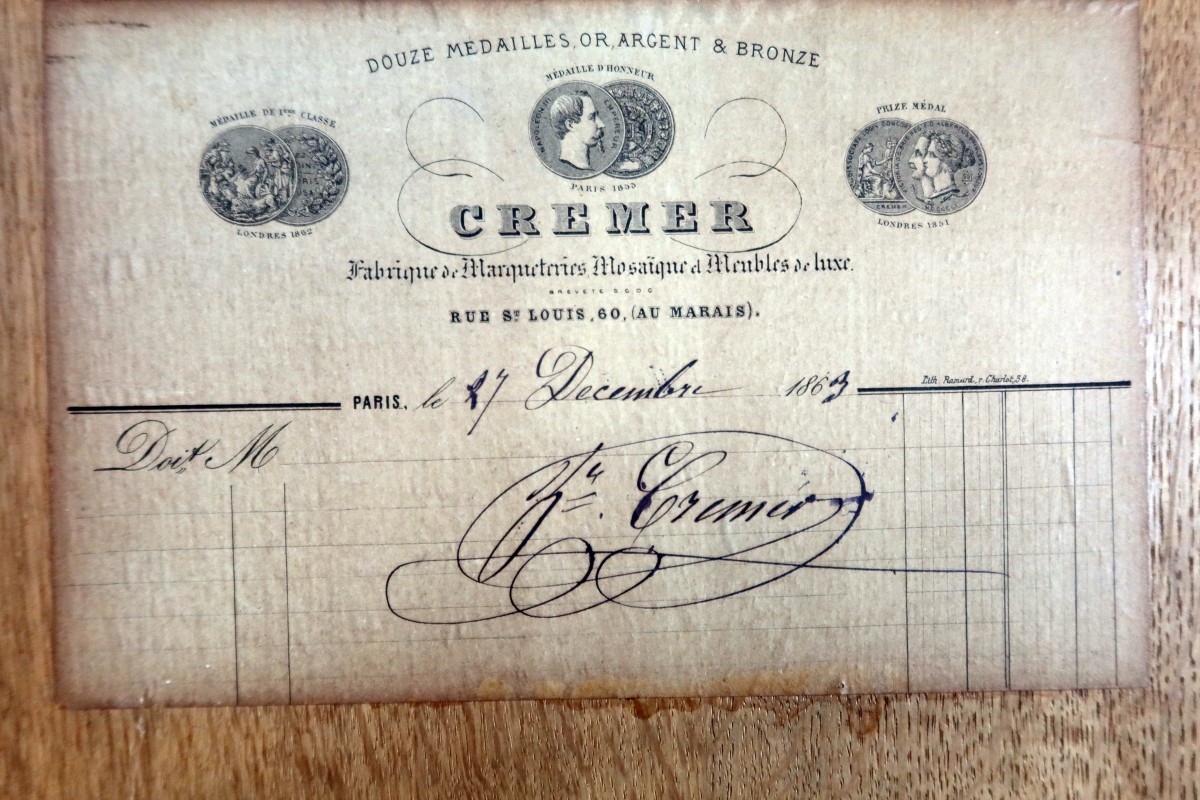 DOUZE MEDAILLES, OR, ARGENT & BRONZE
MÉDAILLE D'HONNEUR
PARIS 1855
MÉDAILLE DE 1ère CLASSE
LONDRES 1862
PRIZE MÉDAL
LONDRES 1851
CREMER
Fabrique de Marqueteries, Mosaïque et Meubles de luxe.
BREVETÉ S.G.D.G
RUE St LOUIS, 60, (AU MARAIS).
PARIS, le 27 Decembre 1863
Lith. Renard, r. Charlot, 38.
Doit M
Cremer